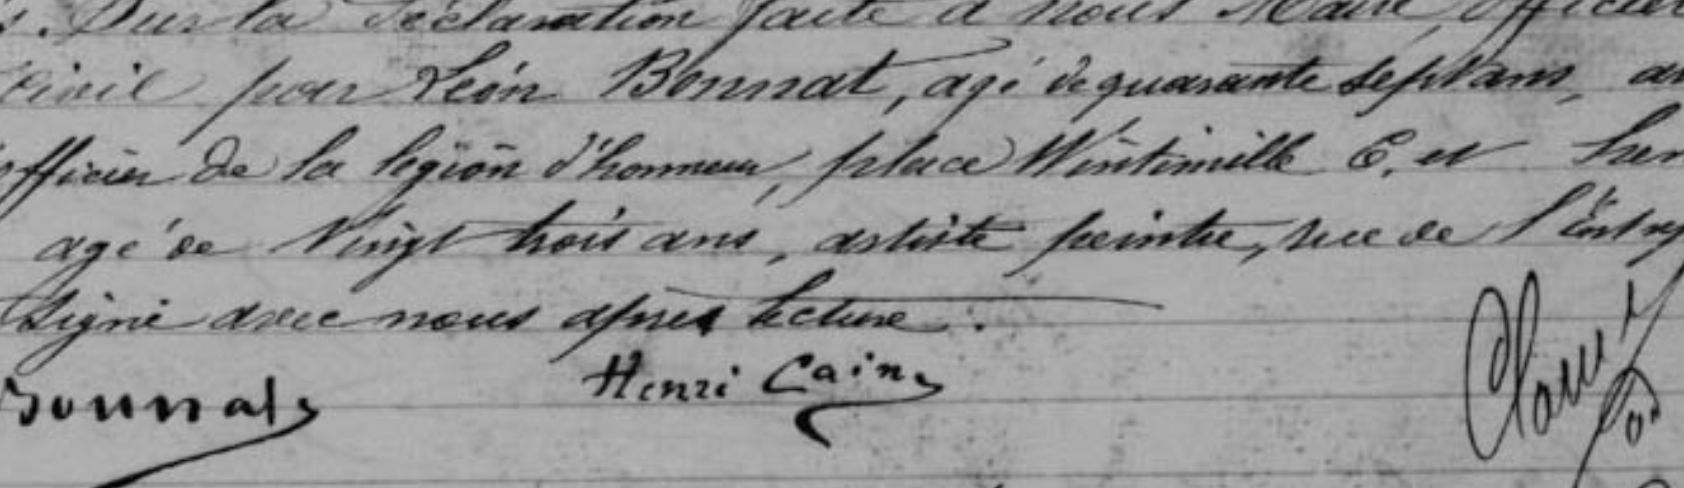 . Sur la déclaration faite à nous Maire, officier
civil par Léon Bonnat, agé de quarante sept ans,
officier de la légion d'honneur, place Wintimille 6, et hen
agé de vingt trois ans, artiste peintre, rue de l'
signé avec nous après lecture.
Bonnat Henri Cain